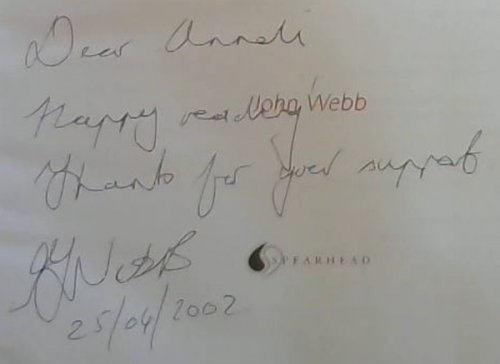 Dear Anneli
Happy reading!
John Webb
Thanks for your support
JWebb
SPEARHEAD
25/04/2002